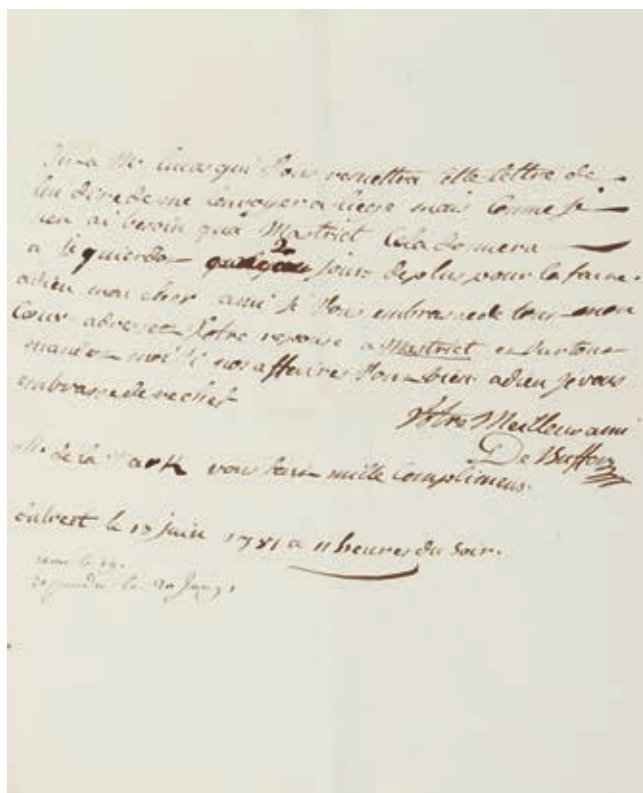 Mr lucas qui Vous remettra cette lettre de
lui dire de me l'envoyer a liege mais comme je
n'en ai besoin qu'a Mastrict Cela donnera
a 2 jours de plus pour le faire.
adieu mon cher ami je Vous embrasse de tout mon
Cœur adressez Votre reponse a Mastrict et surtout
mandez moi si nos affaires Vont bien adieu je vous
embrasse derechef
Votre Meilleur ami
De Buffon
Mr de la Mark vous fait mille complimens.
le 17 juin 1781 a 11 heures du soir.
le 19.
repondu le 20 Juin